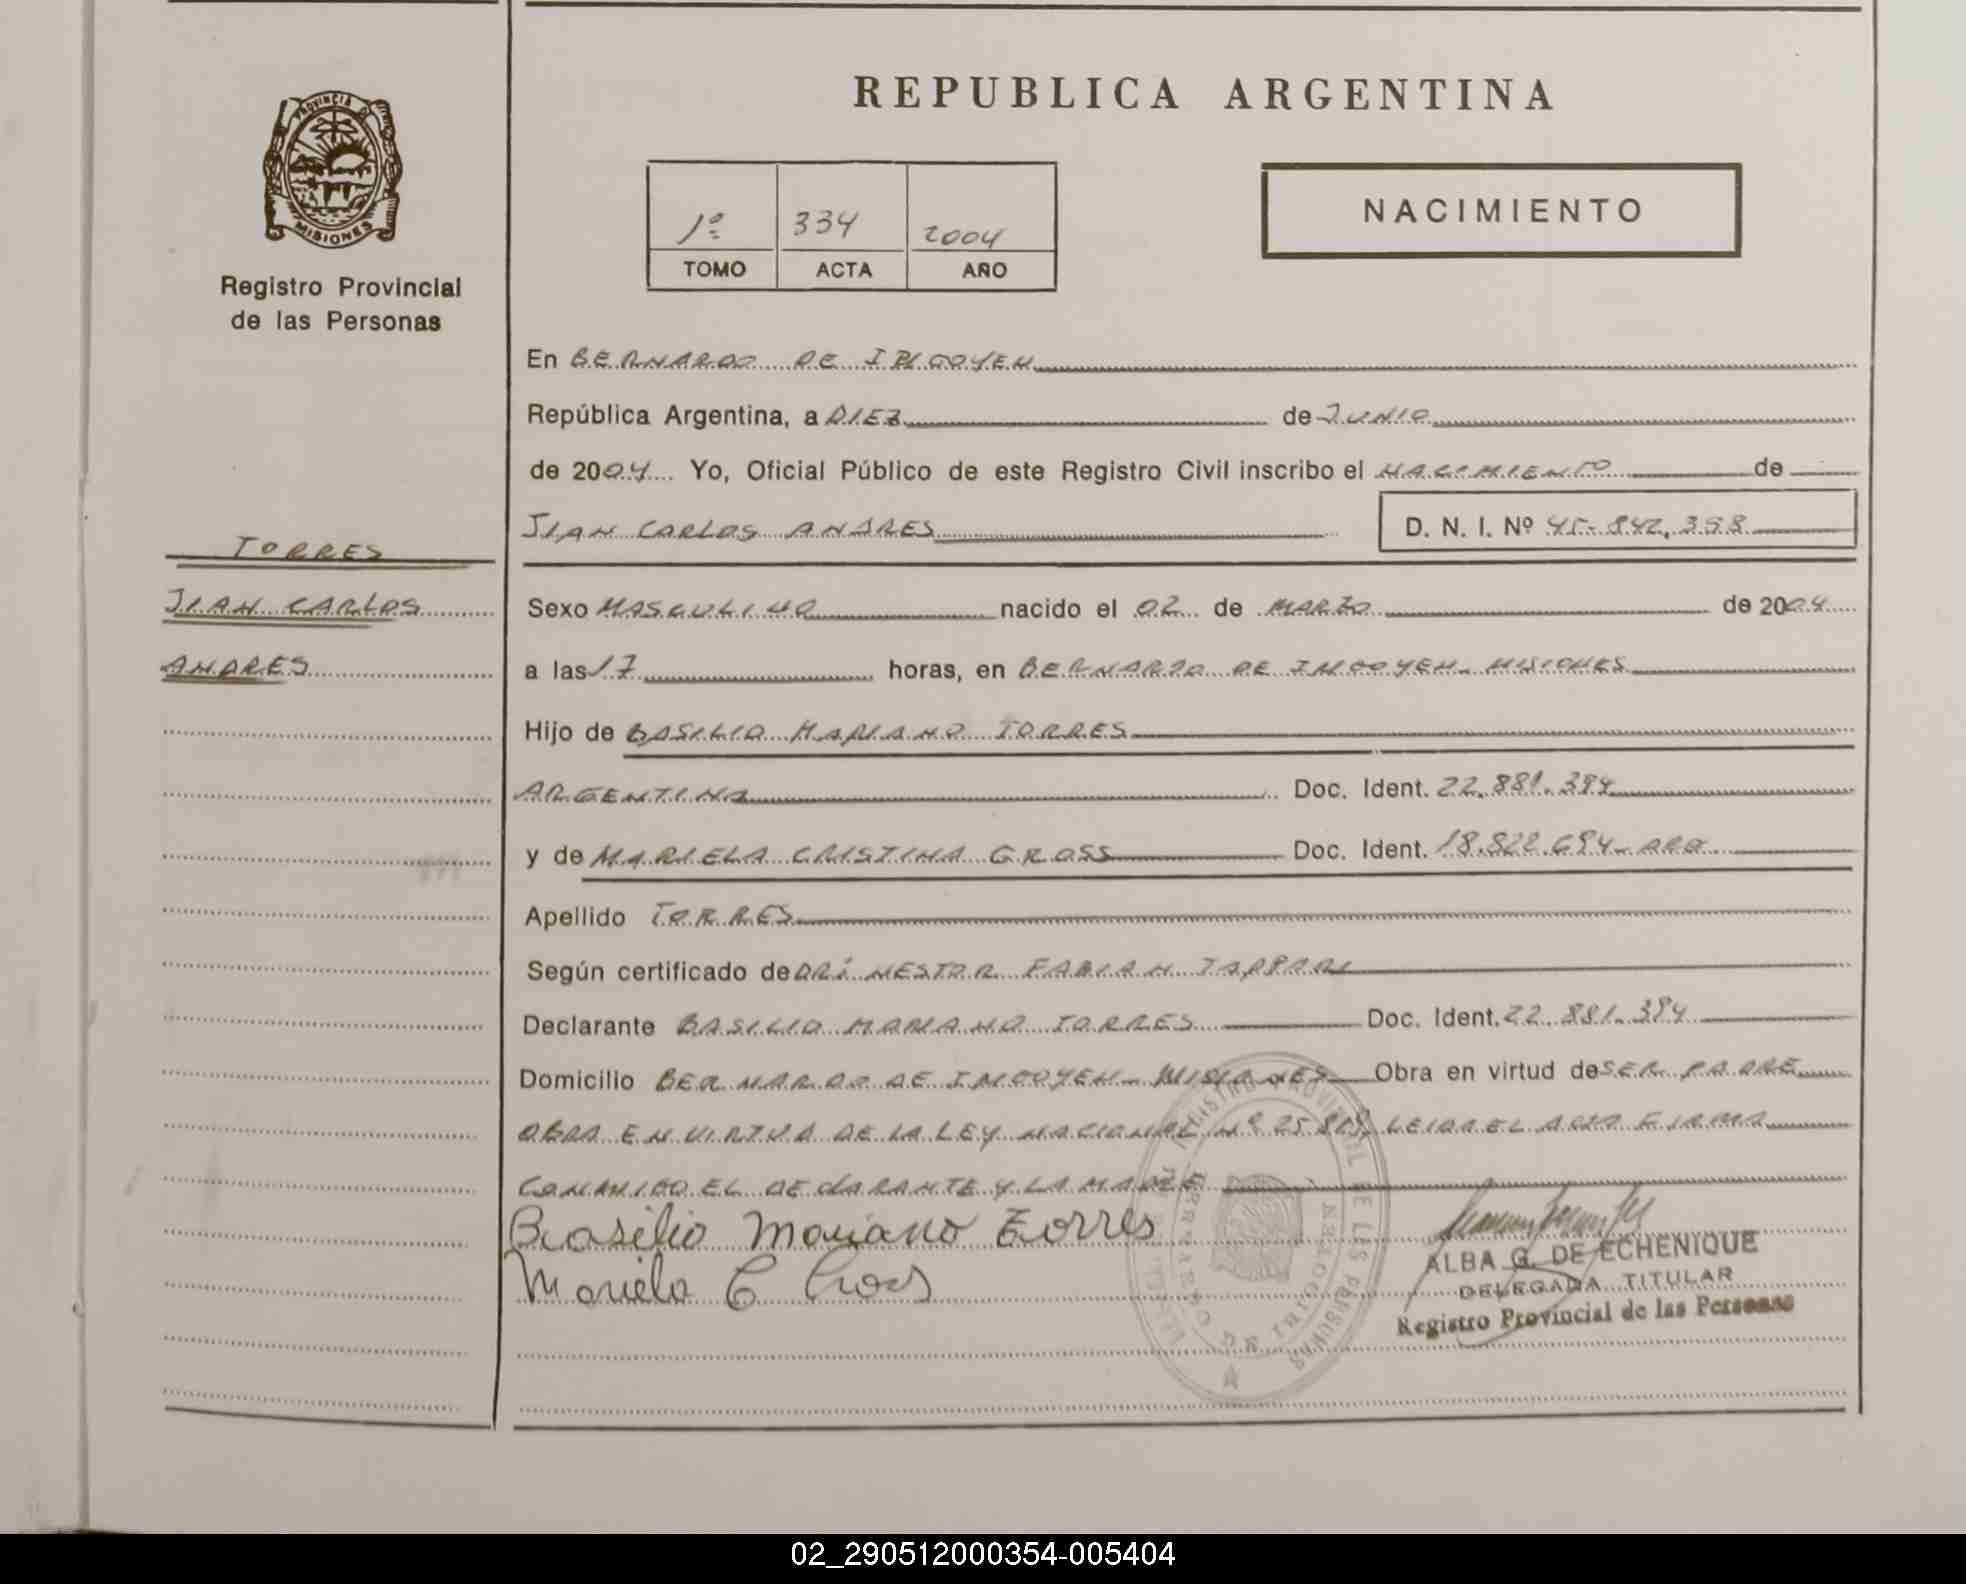 PROVINCIA DE
MISIONES
Registro Provincial
de las Personas
TORRES
JIAN CARLOS
ANDRES
REPUBLICA ARGENTINA
1º 334 2004
TOMO ACTA AÑO
NACIMIENTO
En BERNARDO DE IRIGOYEN
República Argentina, a DIEZ de JUNIO
de 2004 Yo, Oficial Público de este Registro Civil inscribo el NACIMIENTO de
JIAN CARLOS ANDRES D. N. I. Nº 45.842.358
Sexo MASCULINO nacido el 02 de MARZO de 2004
a las 17 horas, en BERNARDO DE IRIGOYEN - MISIONES
Hijo de BASILIO MARIANO TORRES
ARGENTINA Doc. Ident. 22.881.394
y de MARIELA CRISTINA GROSS Doc. Ident. 18.822.694 - ARG
Apellido TORRES
Según certificado de DR: NESTOR FABIAN
Declarante BASILIO MARIANO TORRES Doc. Ident. 22.881.394
Domicilio BERNARDO DE IRIGOYEN - MISIONES Obra en virtud de SER PADRE
OBRA EN VIRTUD DE LA LEY NACIONAL Nº 25.819, LEIDA EL ACTA FIRMA
CONMIGO EL DECLARANTE Y LA MADRE
Basilio Mariano Torres
Mariela C Gross
ALBA G. DE ECHENIQUE
DELEGADA TITULAR
Registro Provincial de las Personas
02_290512000354-005404